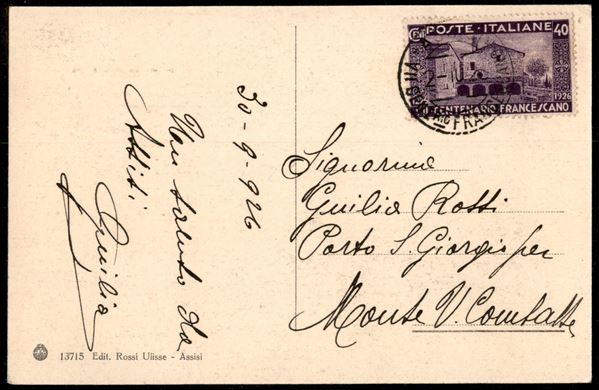 30-9-926
Un saluto da
Assisi
Giulia
CENT POSTE·ITALIANE 40
1926
CENTENARIO FRANCESCANO
Signorina
Guilia Rossi
Porto S. Giorgio per
Monte V. Combatte
13715 Edit. Rossi Ulisse - Assisi